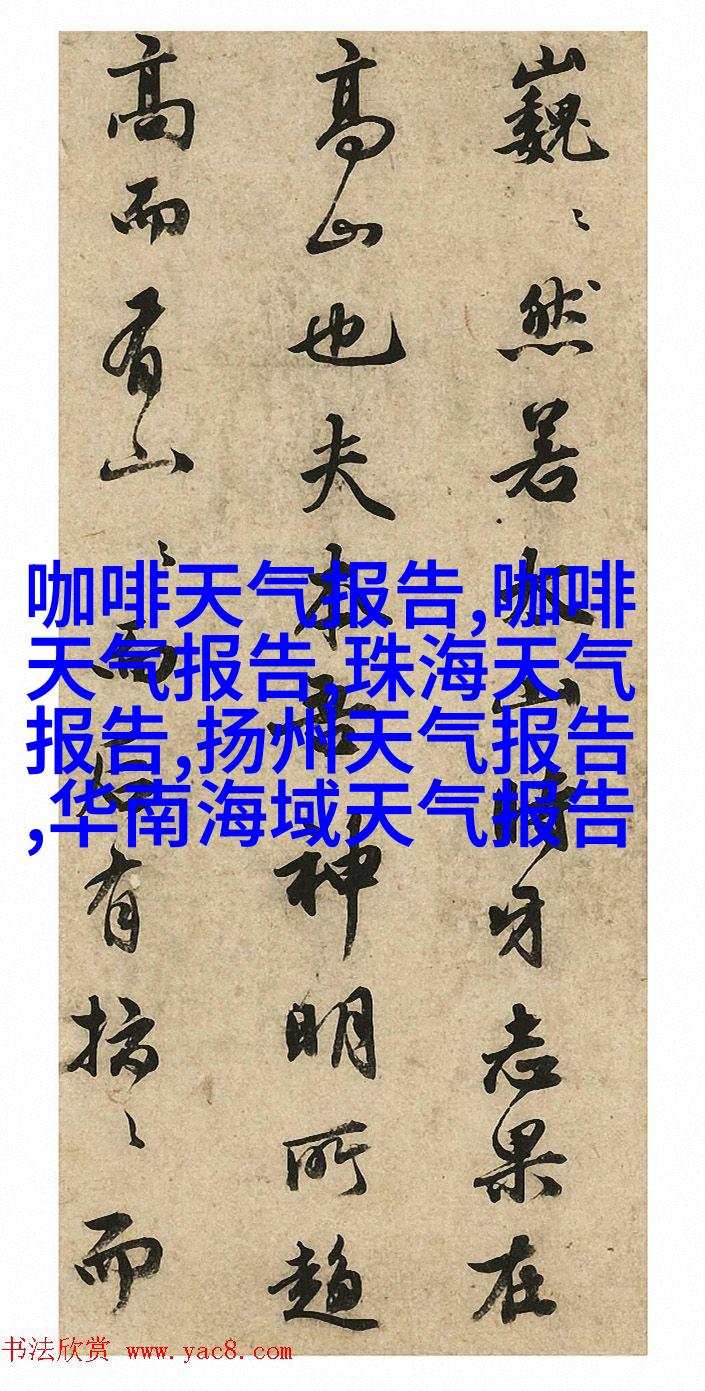 巍〻然若大山時牙志果在
高山也夫本居神明所趨
高而有山〻而后有〻而
咖啡天气报告,咖啡
天气报告,珠海天气
报告,扬州天气报告
,华南海域天气报告
书法欣赏 www.yac8.com